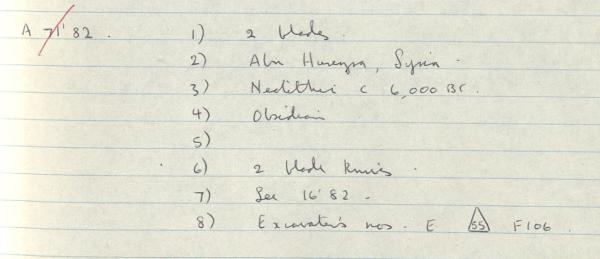 A 71'82. 1) 2 blades.
2) Abu Hureyra, Syria.
3) Neolithic c 6,000 BC.
4) Obsidian
5)
6) 2 blade knives.
7) See 16'82.
8) Excavater's nos. E 55 F106.